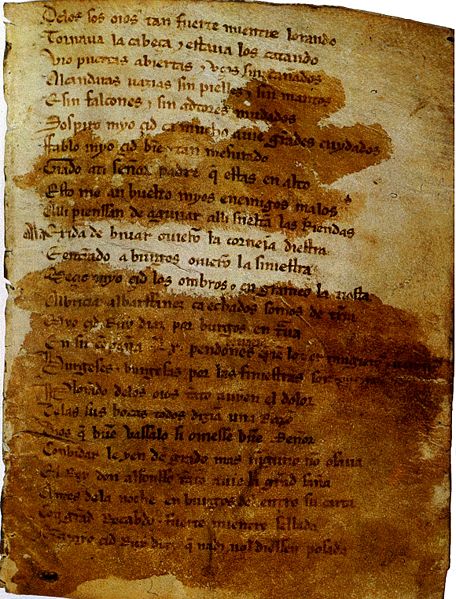 Delos sos oios tan fuerte mientre lorando
Tornava la cabeça ⁊ estava los catando
Vio puertas abiertas ⁊ vços sin cañados
Alcandaras vazias sin pielles ⁊ sin mantos
E sin falcones ⁊ sin adtores mudados
Sospiro myo çid ca mucho avie grãdes cuydados
Fablo myo çid bie⁊ ⁊ tan mesurado
Grado ati señor padre q̃ estas en alto
Esto me an buelto myos enemigos malos
Alli pienssan de aguijar alli sueltã las Riendas
Ala exida de bivar ovierõ la corneja diestra
E entrãdo a burgos ovierõ la siniestra
Meçio myo çid los ombros ⁊ en grameo la tiesta
Albricia albarffanez ca echados somos de tierra
Myo çid Ruy diaz por burgos en traua
En su conpaña .Lx. pendones
Burgeses ⁊ burgesas por las finiestras son
Plorando delos oios tãto avyen el dolor
Delas sus bocas todos dizian una Razõ
Dios q̃ buẽ vassalo si oviesse buẽ Señor
Conbidar le yen de grado mas ninguno no osava
El Rey don alfonsso tãto avie la grãd saña
Antes dela noche en burgos del entro su carta
Con grãd Recabdo ⁊ fuerte mientre sellada
Que a myo çid Ruy diaz q̃ nadi nol diessen posada